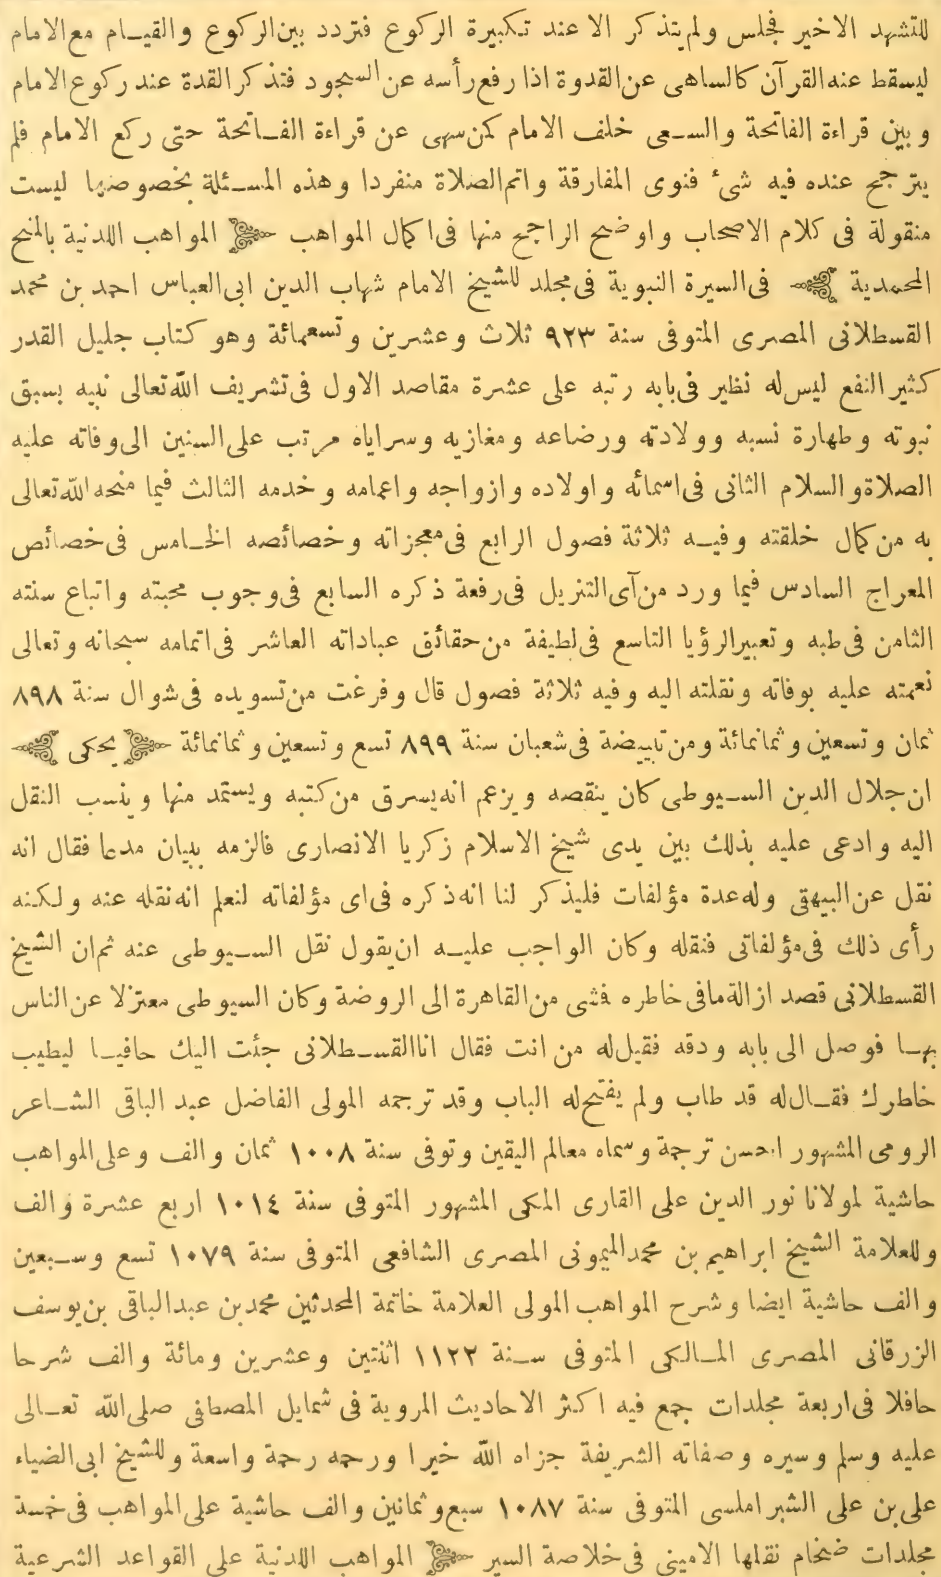 للتشهد الاخير فجلس ولم يتذكر الا عند تكبيرة الركوع فتردد بين الركوع والقيام مع الامام
ليسقط عنه القرآن كالساهى عن القدوة اذا رفع رأسه عن السجود فتذكر القدة عند ركوع الامام
وبين قراءة الفاتحة والسعى خلف الامام كمن سهى عن قراءة الفاتحة حتى ركع الامام فلم
يترجح عنده فيه شئ فنوى المفارقة واتم الصلاة منفردا وهذه المسئلة بخصوصها ليست
منقولة فى كلام الاصحاب واوضح الراجح منها فى اكمال المواهب المواهب اللدنية بالمنح
المحمدية فى السيرة النبوية فى مجلد للشيخ الامام شهاب الدين ابى العباس احمد بن محمد
القسطلانى المصرى المتوفى سنة ٩٢٣ ثلاث وعشرين وتسعمائة وهو كتاب جليل القدر
كثير النفع ليس له نظير فى بابه رتبه على عشرة مقاصد الاول فى تشريف الله تعالى نبيه بسبق
نبوته وطهارة نسبه وولادته ورضاعه ومغازيه وسراياه مرتب على السنين الى وفاته عليه
الصلاة والسلام الثانى فى اسمائه واولاده وازواجه واعمامه وخدمه الثالث فيما منحه الله تعالى
به من كمال خلقته وفيه ثلاثة فصول الرابع فى معجزاته وخصائصه الخامس فى خصائص
المعراج السادس فيما ورد من آى التنزيل فى رفعة ذكره السابع فى وجوب محبته واتباع سنته
الثامن فى طبه وتعبير الرؤيا التاسع فى لطيفة من حقائق عباداته العاشر فى اتمامه سبحانه وتعالى
نعمته عليه بوفاته ونقلته اليه وفيه ثلاثة فصول قال وفرغت من تسويده فى شوال سنة ٨٩٨
ثمان وتسعين وثمانمائة ومن تبييضه فى شعبان سنة ٨٩٩ تسع وتسعين وثمانمائة يحكى
ان جلال الدين السيوطى كان ينقصه ويزعم انه يسرق من كتبه ويستمد منها وينسب النقل
اليه وادعى عليه بذلك بين يدى شيخ الاسلام زكريا الانصارى فالزمه ببيان مدعا فقال انه
نقل عن البيهقى وله عدة مؤلفات فليذكر لنا انه ذكره فى اى مؤلفاته لنعلم انه نقله عنه ولكنه
رأى ذلك فى مؤلفاتى فنقله وكان الواجب عليه ان يقول نقل السيوطى عنه ثم ان الشيخ
القسطلانى قصد ازالة مافى خاطره فمشى من القاهرة الى الروضة وكان السيوطى معتزلا عن الناس
بها فوصل الى بابه ودقه فقيل له من انت فقال انا القسطلانى جئت اليك حافيا ليطيب
خاطرك فقال له قد طاب ولم يفتح له الباب وقد ترجمه المولى الفاضل عبد الباقى الشاعر
الرومى المشهور احسن ترجمة وسماه معالم اليقين وتوفى سنة ١٠٠٨ ثمان والف وعلى المواهب
حاشية لمولانا نور الدين على القارى المكى المشهور المتوفى سنة ١٠١٤ اربع عشرة والف
وللعلامة الشيخ ابراهيم بن محمد الميمونى المصرى الشافعى المتوفى سنة ١٠٧٩ تسع وسبعين
والف حاشية ايضا وشرح المواهب المولى العلامة خاتمة المحدثين محمد بن عبدالباقى بن يوسف
الزرقانى المصرى المالكى المتوفى سنة ١١٢٢ اثنتين وعشرين ومائة والف شرحا
حافلا فى اربعة مجلدات جمع فيه اكثر الاحاديث المروية فى شمايل المصطفى صلى الله تعالى
عليه وسلم وسيره وصفاته الشريفة جزاه الله خيرا ورحمه رحمة واسعة وللشيخ ابى الضياء
على بن على الشبراملسى المتوفى سنة ١٠٨٧ سبع وثمانين والف حاشية على المواهب فى خمسة
مجلدات ضخام نقلها الامينى فى خلاصة السير المواهب اللدنية على القواعد الشرعية